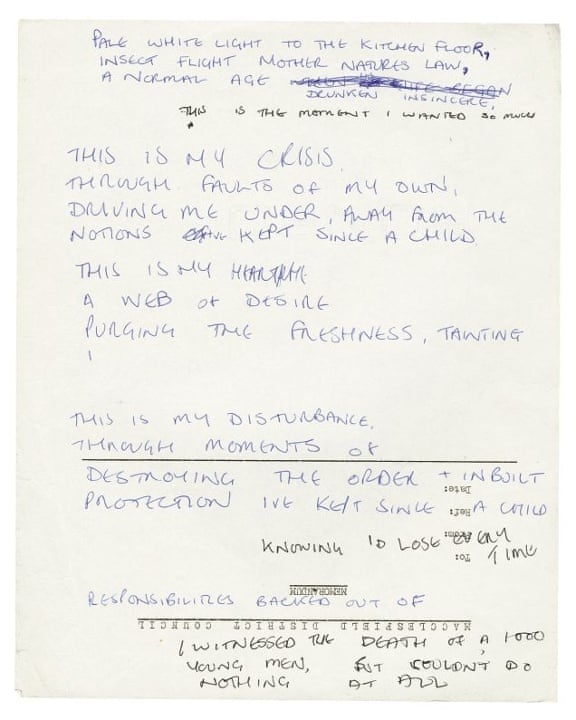 PALE WHITE LIGHT TO THE KITCHEN FLOOR,
INSECT FLIGHT MOTHER NATURES LAW,
A NORMAL AGE
DRUNKEN INSINCERE,
THIS IS THE MOMENT I WANTED SO MUCH
THIS IS MY CRISIS
THROUGH FAULTS OF MY OWN,
DRIVING ME UNDER, AWAY FROM THE
NOTIONS KEPT SINCE A CHILD
THIS IS MY
A WEB OF DESIRE
PURGING THE FRESHNESS, TAINTING
I
THIS IS MY DISTURBANCE,
THROUGH MOMENTS OF
DESTROYING THE ORDER + INBUILT
Date:
PROTECTION IVE KEPT SINCE A CHILD
Ref:
KNOWING I'D LOSE EVERY
From:
TIME
To:
MEMORANDUM
RESPONSIBILITIES BACKED OUT OF
MACCLESFIELD DISTRICT COUNCIL
I WITNESSED THE DEATH OF A 1000
YOUNG MEN, BUT COULDN'T DO
NOTHING AT ALL